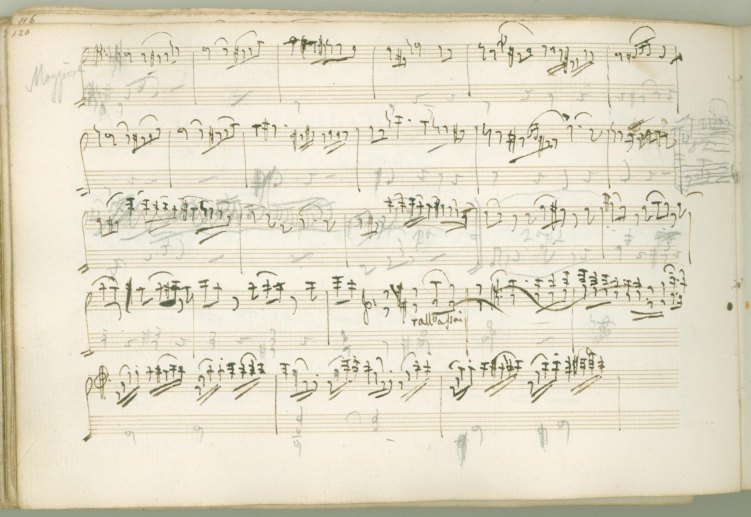 116
120
Maggiore
rall: assai